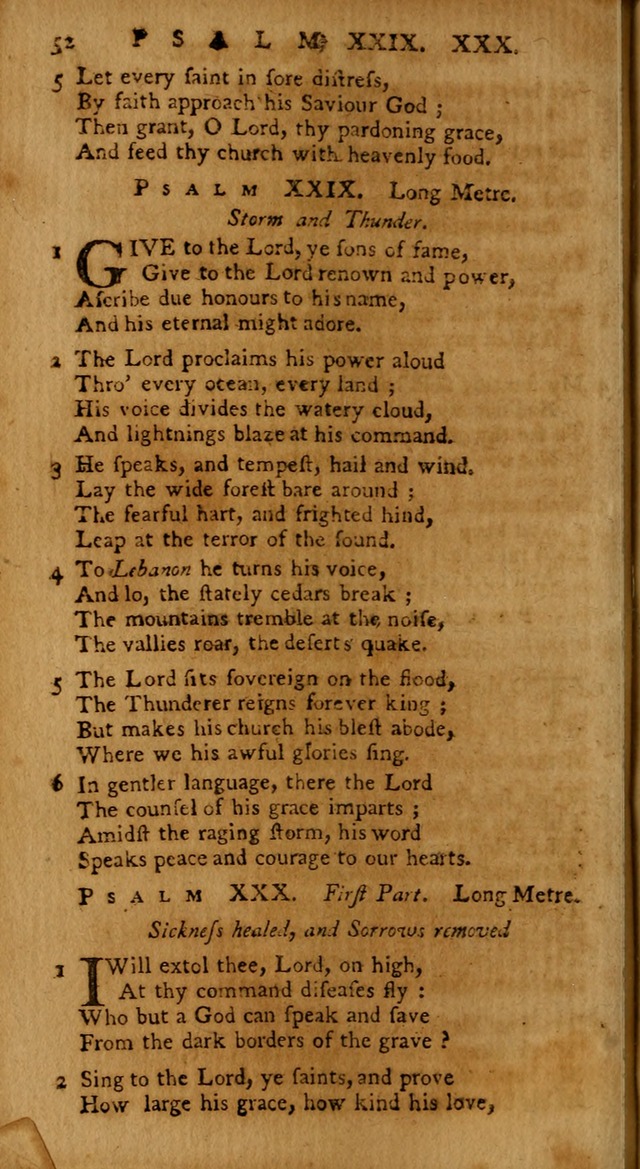 52 PSALM XXIX. XXX.
5 Let every ſaint in ſore diſtreſs,
By faith approach his Saviour God ;
Then grant, O Lord, thy pardoning grace,
And feed thy church with heavenly food.
PSALM XXIX. Long Metre.
Storm and Thunder.
1 GIVE to the Lord, ye ſons of fame,
Give to the Lord renown and power,
Aſcribe due honours to his name,
And his eternal might adore.
2 The Lord proclaims his power aloud
Thro' every ocean, every land ;
His voice divides the watery cloud,
And lightnings blaze at his command.
3 He ſpeaks, and tempeſt, hail and wind.
Lay the wide foreſt bare around ;
The fearful hart, and frighted hind,
Leap at the terror of the ſound.
4 To Lebanon he turns his voice,
And lo, the ſtately cedars break ;
The mountains tremble at the noiſe,
The vallies roar, the deſerts quake.
5 The Lord ſits ſovereign on the flood,
The Thunderer reigns forever king ;
But makes his church his bleſt abode,
Where we his awful glories ſing.
6 In gentler language, there the Lord
The counſel of his grace imparts ;
Amidſt the raging ſtorm, his word
Speaks peace and courage to our hearts.
PSALM XXX. Firſt Part. Long Metre.
Sickneſs healed, and Sorrows removed
1 I Will extol thee, Lord, on high,
At thy command diſeaſes fly :
Who but a God can ſpeak and ſave
From the dark borders of the grave ?
2 Sing to the Lord, ye ſaints, and prove
How large his grace, how kind his love,